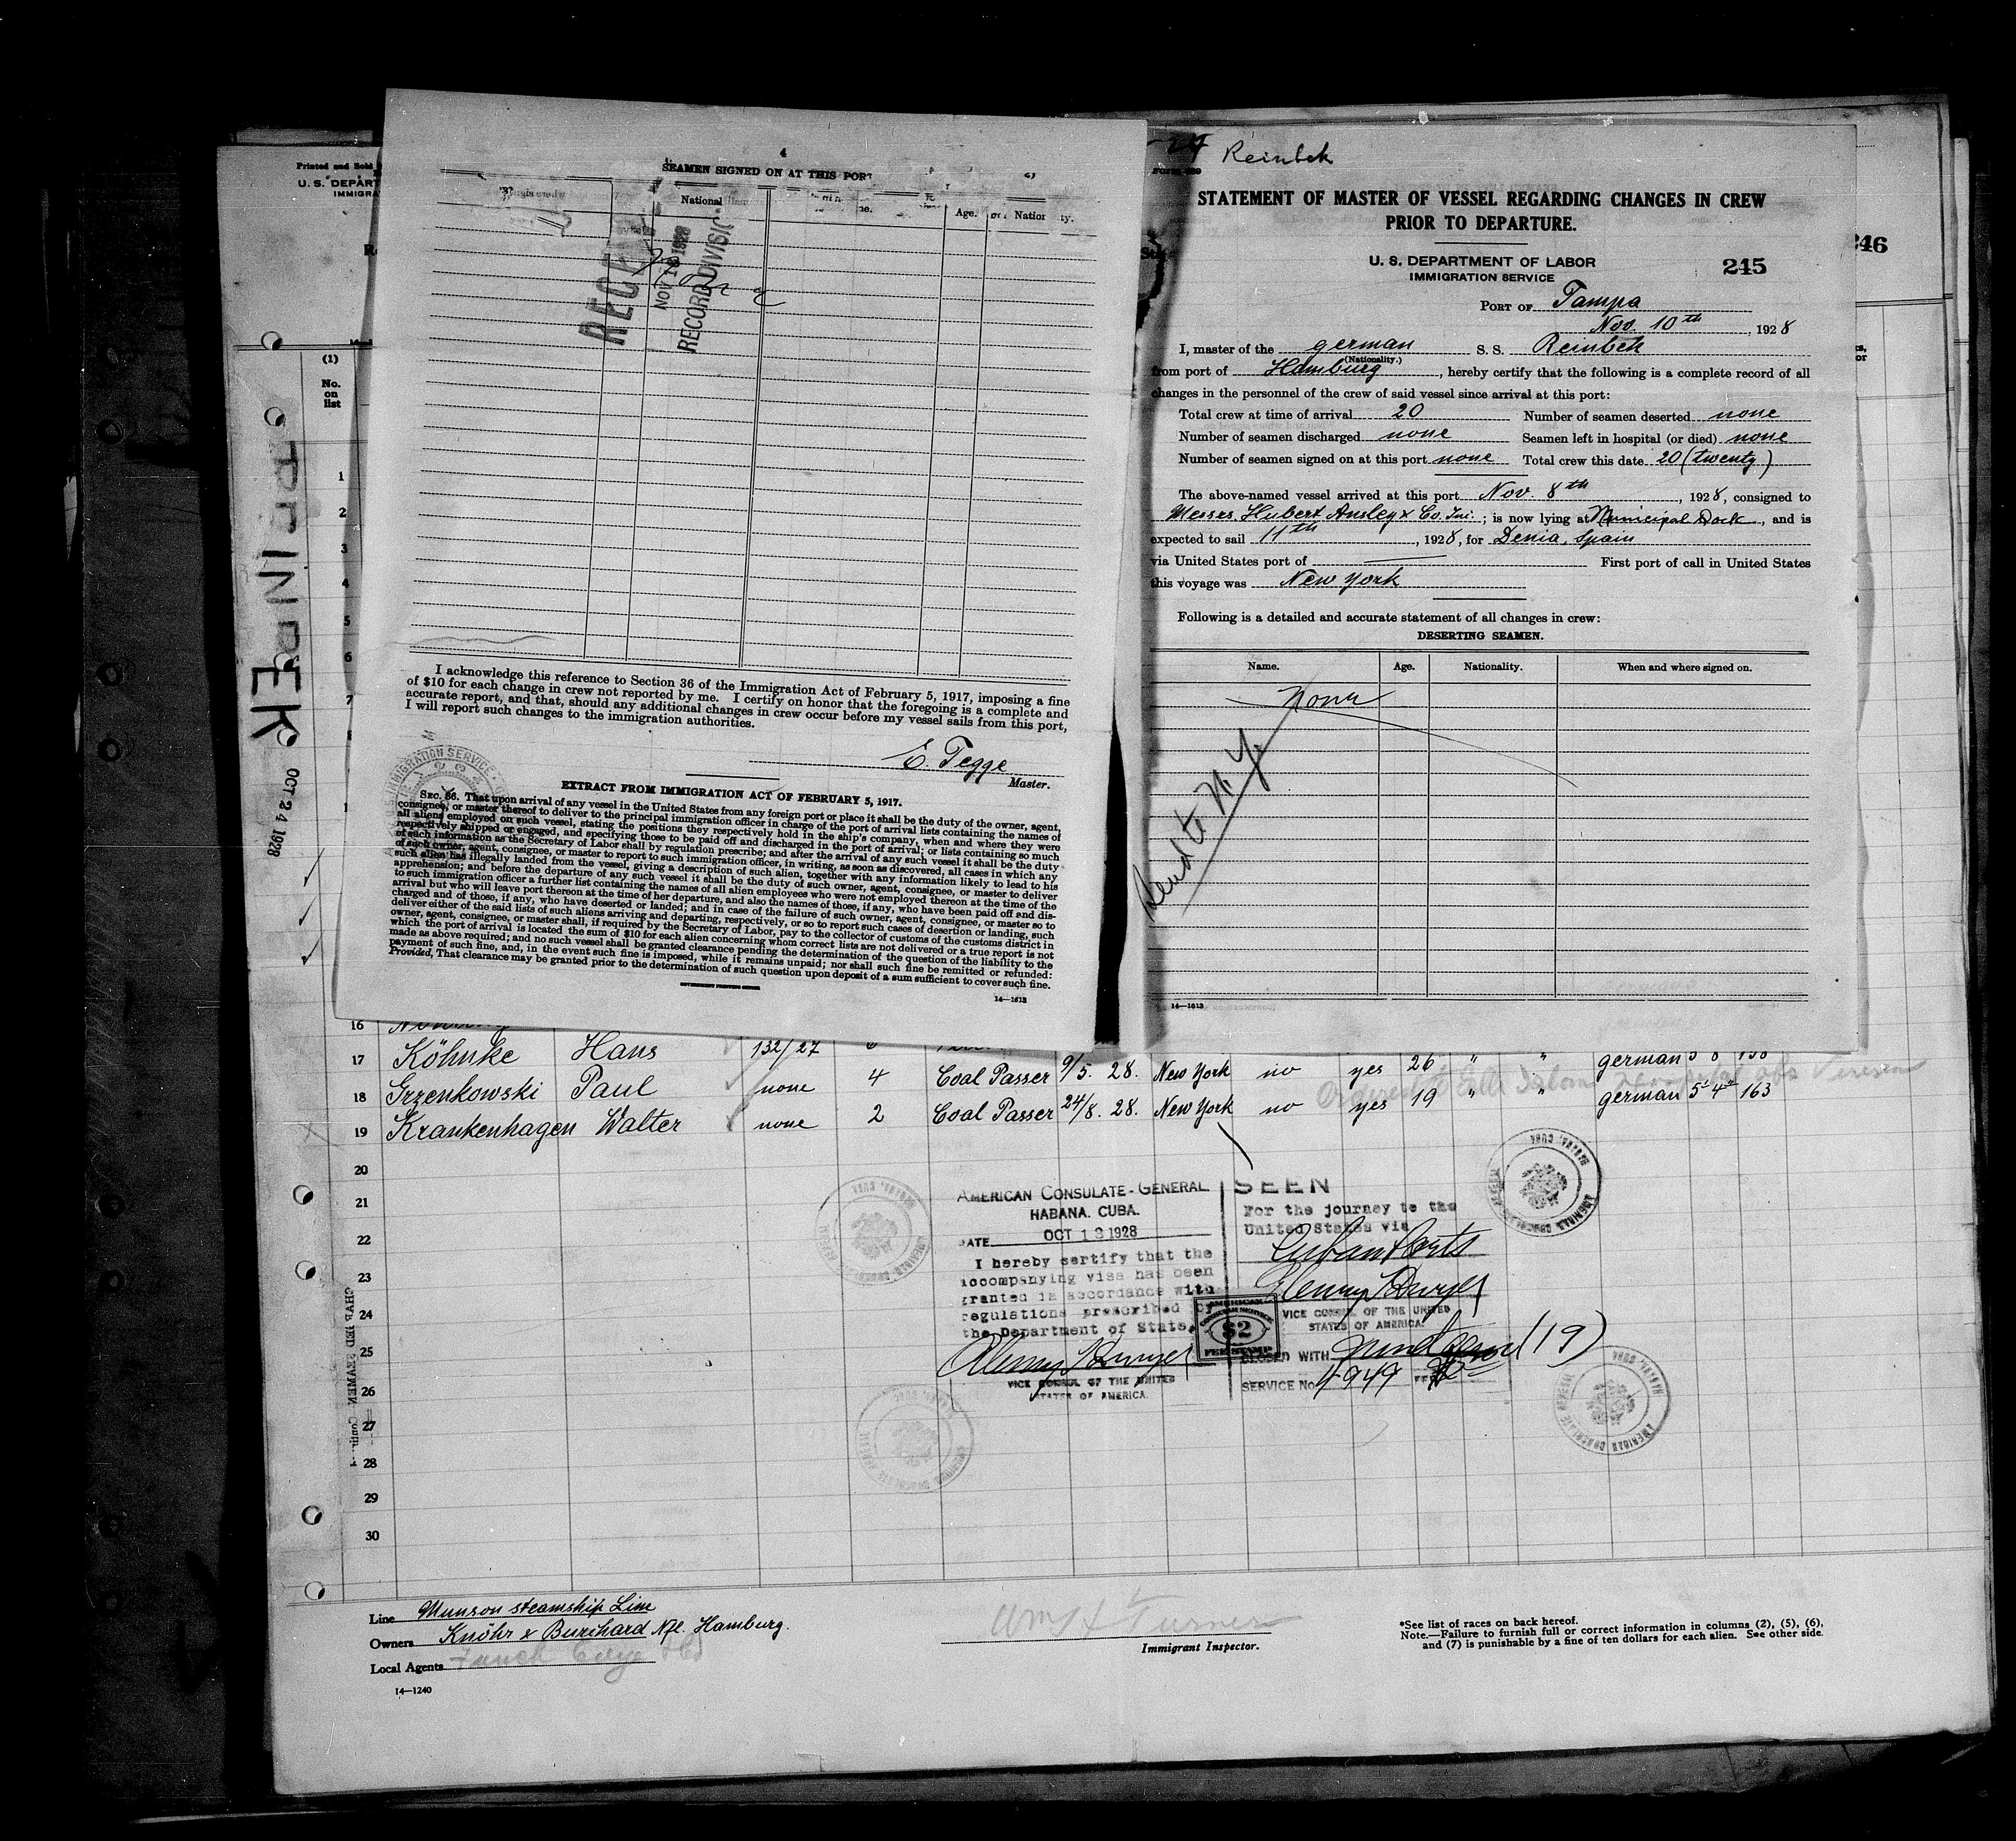 4
SEAMEN SIGNED ON AT THIS PORT
National
Age.
RECORD DIVISION
NOV 1928
I acknowledge this reference to Section 36 of the Immigration Act of February 5, 1917, imposing a fine
of $10 for each change in crew not reported by me. I certify on honor that the foregoing is a complete and
accurate report, and that, should any additional changes in crew occur before my vessel sails from this port,
I will report such changes to the immigration authorities.
E. Tegge
Master.
IMMIGRATION SERVICE
EXTRACT FROM IMMIGRATION ACT OF FEBRUARY 5, 1917.
SEC. 36. That upon arrival of any vessel in the United States from any foreign port or place it shall be the duty of the owner, agent,
consignee, or master thereof to deliver to the principal immigration officer in charge of the port of arrival lists containing the names of
all aliens employed on such vessel, stating the positions they respectively hold in the ship's company, when and where they were
respectively shipped or engaged, and specifying those to be paid off and discharged in the port of arrival; or lists containing so much
of such information as the Secretary of Labor shall by regulation prescribe; and after the arrival of any such vessel it shall be the duty
of such owner, agent, consignee, or master to report to such immigration officer, in writing, as soon as discovered, all cases in which any
such alien has illegally landed from the vessel, giving a description of such alien, together with any information likely to lead to his
apprehension; and before the departure of any such vessel it shall be the duty of such owner, agent, consignee, or master to deliver
to such immigration officer a further list containing the names of all alien employees who were not employed thereon at the time of the
arrival but who will leave port thereon at the time of her departure, and also the names of those, if any, who have been paid off and dis-
charged and of those, if any, who have deserted or landed; and in case of the failure of such owner, agent, consignee, or master so to
deliver either of the said lists of such aliens arriving and departing, respectively, or so to report such cases of desertion or landing, such
owner, agent, consignee, or master shall, if required by the Secretary of Labor, pay to the collector of customs of the customs district in
which the port of arrival is located the sum of $10 for each alien concerning whom correct lists are not delivered or a true report is not
made as above required; and no such vessel shall be granted clearance pending the determination of the question of the liability to the
payment of such fine, and, in the event such fine is imposed, while it remains unpaid; nor shall such fine be remitted or refunded:
Provided, That clearance may be granted prior to the determination of such question upon deposit of a sum sufficient to cover such fine.
GOVERNMENT PRINTING OFFICE
14—1613
Reinbek
STATEMENT OF MASTER OF VESSEL REGARDING CHANGES IN CREW
PRIOR TO DEPARTURE.
U. S. DEPARTMENT OF LABOR
IMMIGRATION SERVICE
245
PORT OF Tampa
Nov. 10th, 1928
I, master of the german S. S. Reinbek
(Nationality.)
from port of Hamburg, hereby certify that the following is a complete record of all
changes in the personnel of the crew of said vessel since arrival at this port:
Total crew at time of arrival 20 Number of seamen deserted none
Number of seamen discharged none Seamen left in hospital (or died) none
Number of seamen signed on at this port none Total crew this date 20 (twenty)
The above-named vessel arrived at this port Nov. 8th, 1928, consigned to
Messrs Hubert Ansley & Co. Inc.; is now lying at Municipal Dock, and is
expected to sail 11th, 1928, for Denia, Spain
via United States port of — First port of call in United States
this voyage was New York
Following is a detailed and accurate statement of all changes in crew:
DESERTING SEAMEN.
Name. Age. Nationality. When and where signed on.
None
Send to N.Y.
14—1613
246
Printed and Sold
U. S. DEPART
IMMIGRA
(1)
No.
on
list
1
2
3
4
5
6
7
REINBEK
OCT 24 1928
16
17 Köhnke Hans 132/27
18 Grzenkowski Paul none 4 Coal Passer 9/5. 28. New York no yes 26 " " german
19 Krankenhagen Walter none 2 Coal Passer 24/8. 28. New York no yes 19 " " german 5'4" 163
20
21
22
23
24
25
26
27
28
29
30
AMERICAN CONSULATE-GENERAL
HABANA, CUBA.
DATE OCT 13 1928
I hereby certify that the
accompanying visa has been
granted in accordance with
regulations prescribed by
the Department of State.
VICE CONSUL OF THE UNITED
STATES OF AMERICA.
SEEN
For the journey to the
United States via
Cuban Ports
VICE CONSUL OF THE UNITED
STATES OF AMERICA.
AMERICAN
CONSULAR SERVICE
$2
FEE STAMP
CLOSED WITH (19)
SERVICE No.
Line Munson steamship Line
Owners Knöhr & Burchard Nfl. Hamburg.
Local Agents
14—1240
Wm Turner
Immigrant Inspector.
*See list of races on back hereof.
Note.—Failure to furnish full or correct information in columns (2), (5), (6),
and (7) is punishable by a fine of ten dollars for each alien. See other side.